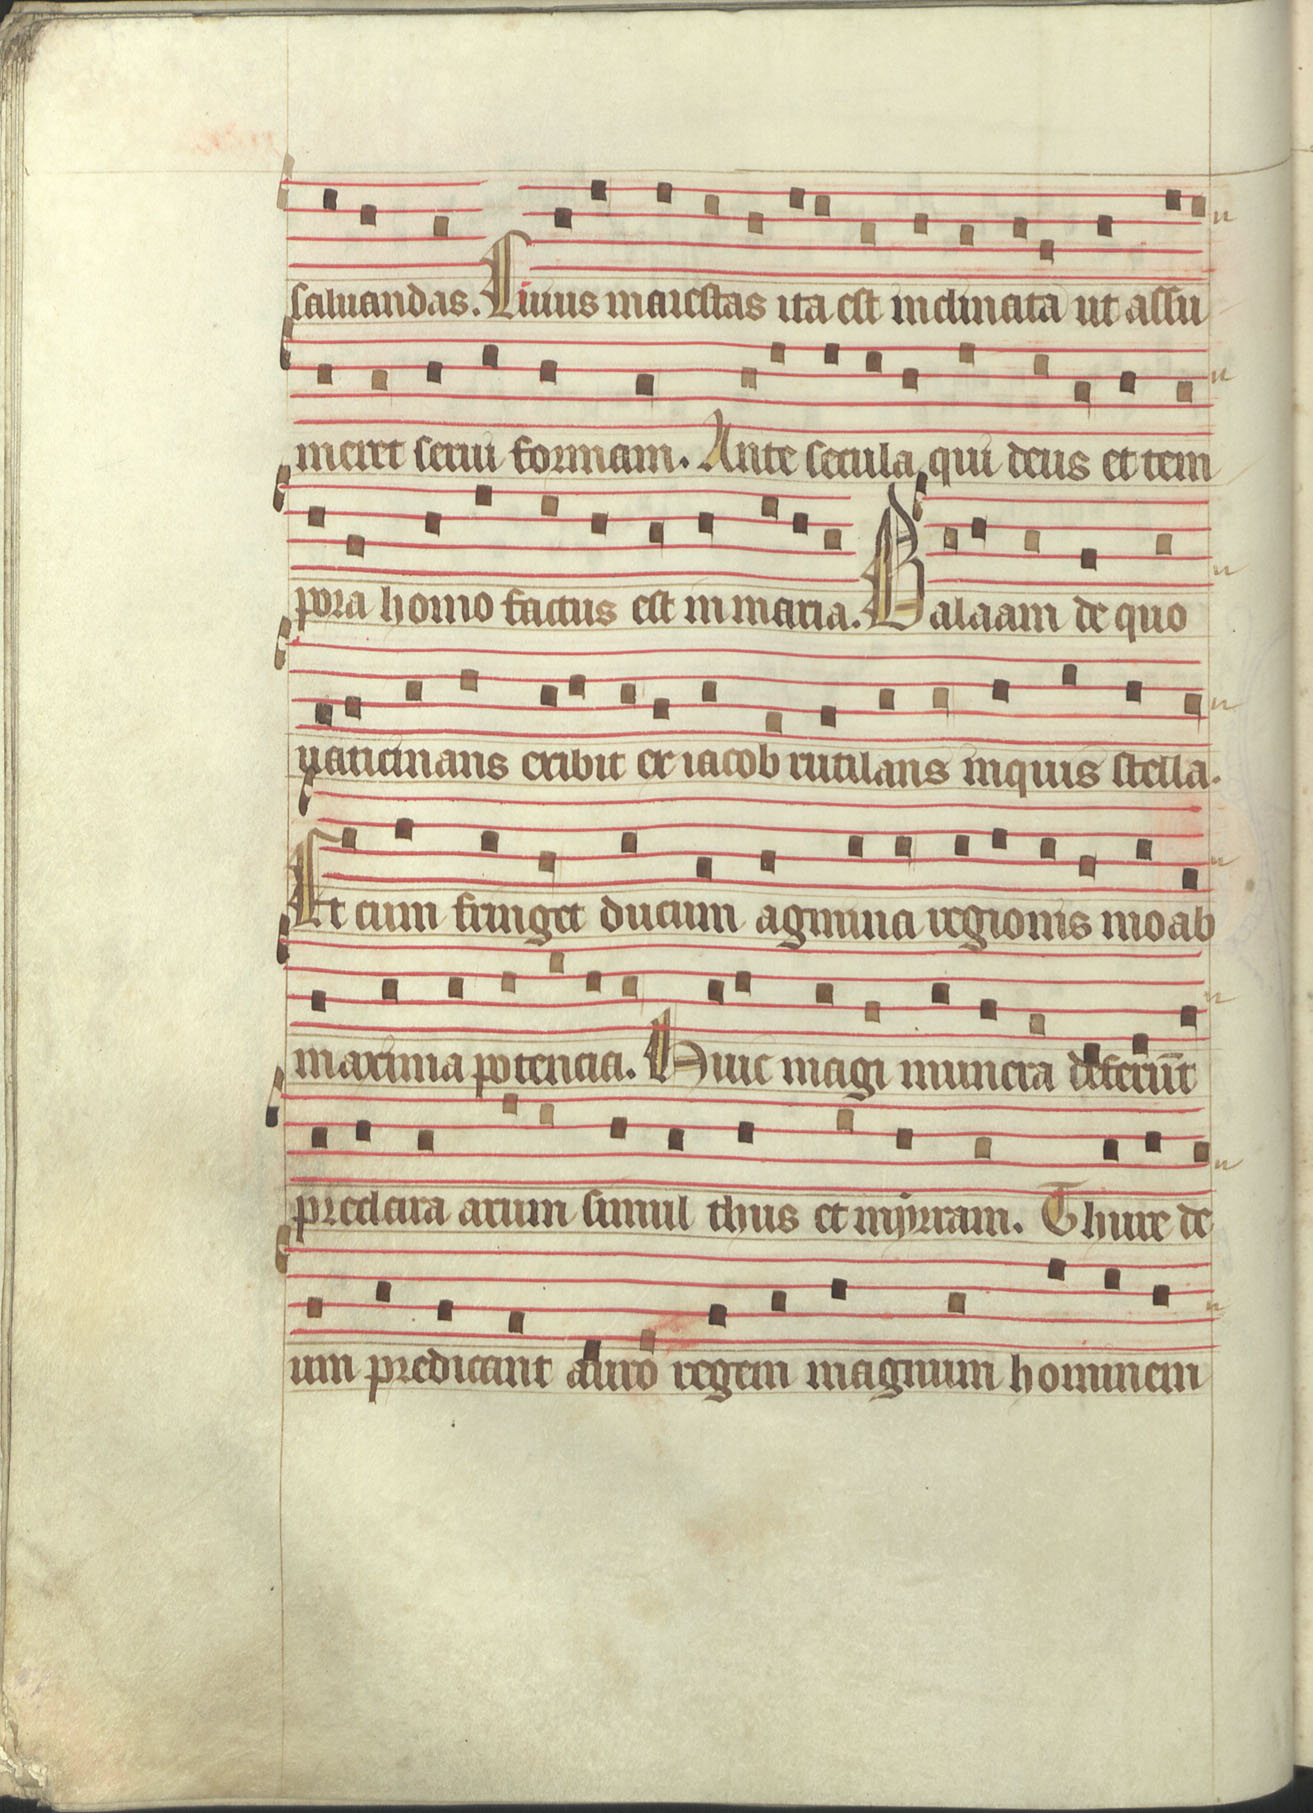 saluandas. Cuius maiestas ita est inclinata ut assu
meret serui formam. Ante secula qui deus et tem
pora homo factus est in maria. Balaam de quo
uaticinans exibit ex iacob rutilans inquis stella.
Et cum fringet ducum agmina regionis moab
maxima potencia. Huic magi munera deferūt
preclara aurum simul thus et myrram. Thure de
um predicant auro regem magnum hominem